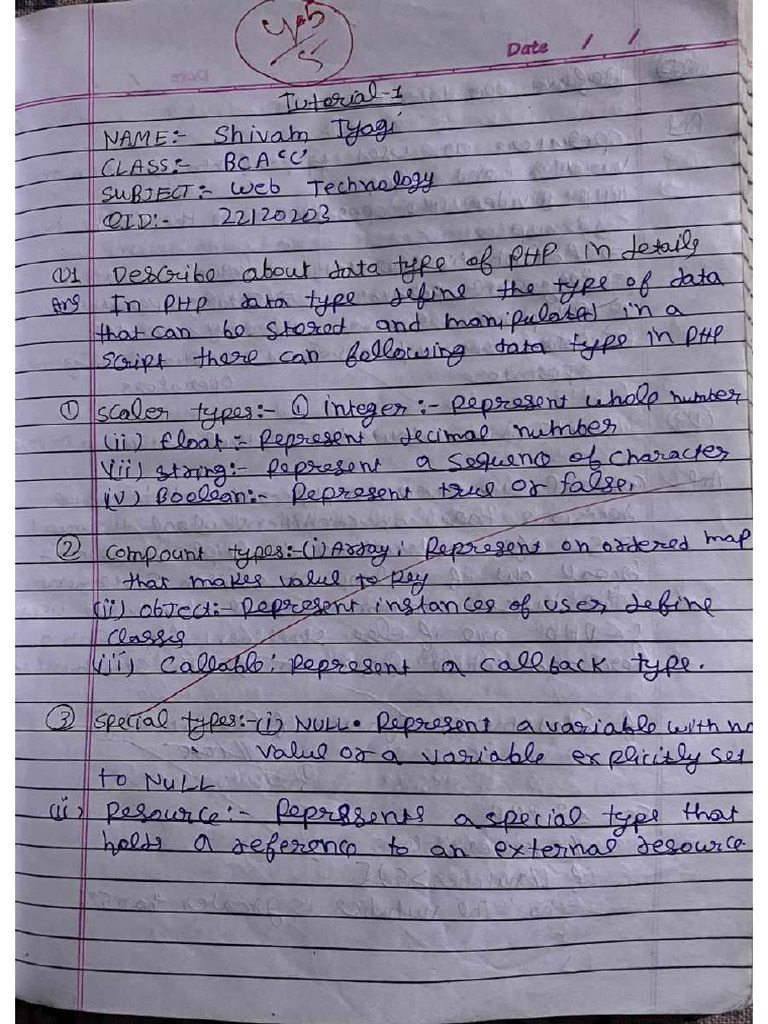 4.5/5
Date / /
Tutorial-1
NAME:- Shivam Tyagi
CLASS:- BCA 'C'
SUBJECT:- Web Technology
QID:- 22120203
Q1 Describe about data type of PHP in details
Ans In PHP data type define the type of data
that can be stored and manipulated in a
script there can following data type in PHP
① Scaler types:- ① integer:- Represent whole number
(ii) float:- Represent decimal number
(iii) string:- Represent a sequence of character
(iv) Boolean:- Represent true or false.
② Compount types:- (i) Array: Represent on ordered map
that makes value to key
(ii) object:- Represent instances of user define
classes
(iii) Callable: Represent a callback type.
③ Special types:- (i) NULL. Represent a variable with no
value or a variable explicitly set
to NULL
(ii) Resource:- Represents a special type that
holds a reference to an external resource.